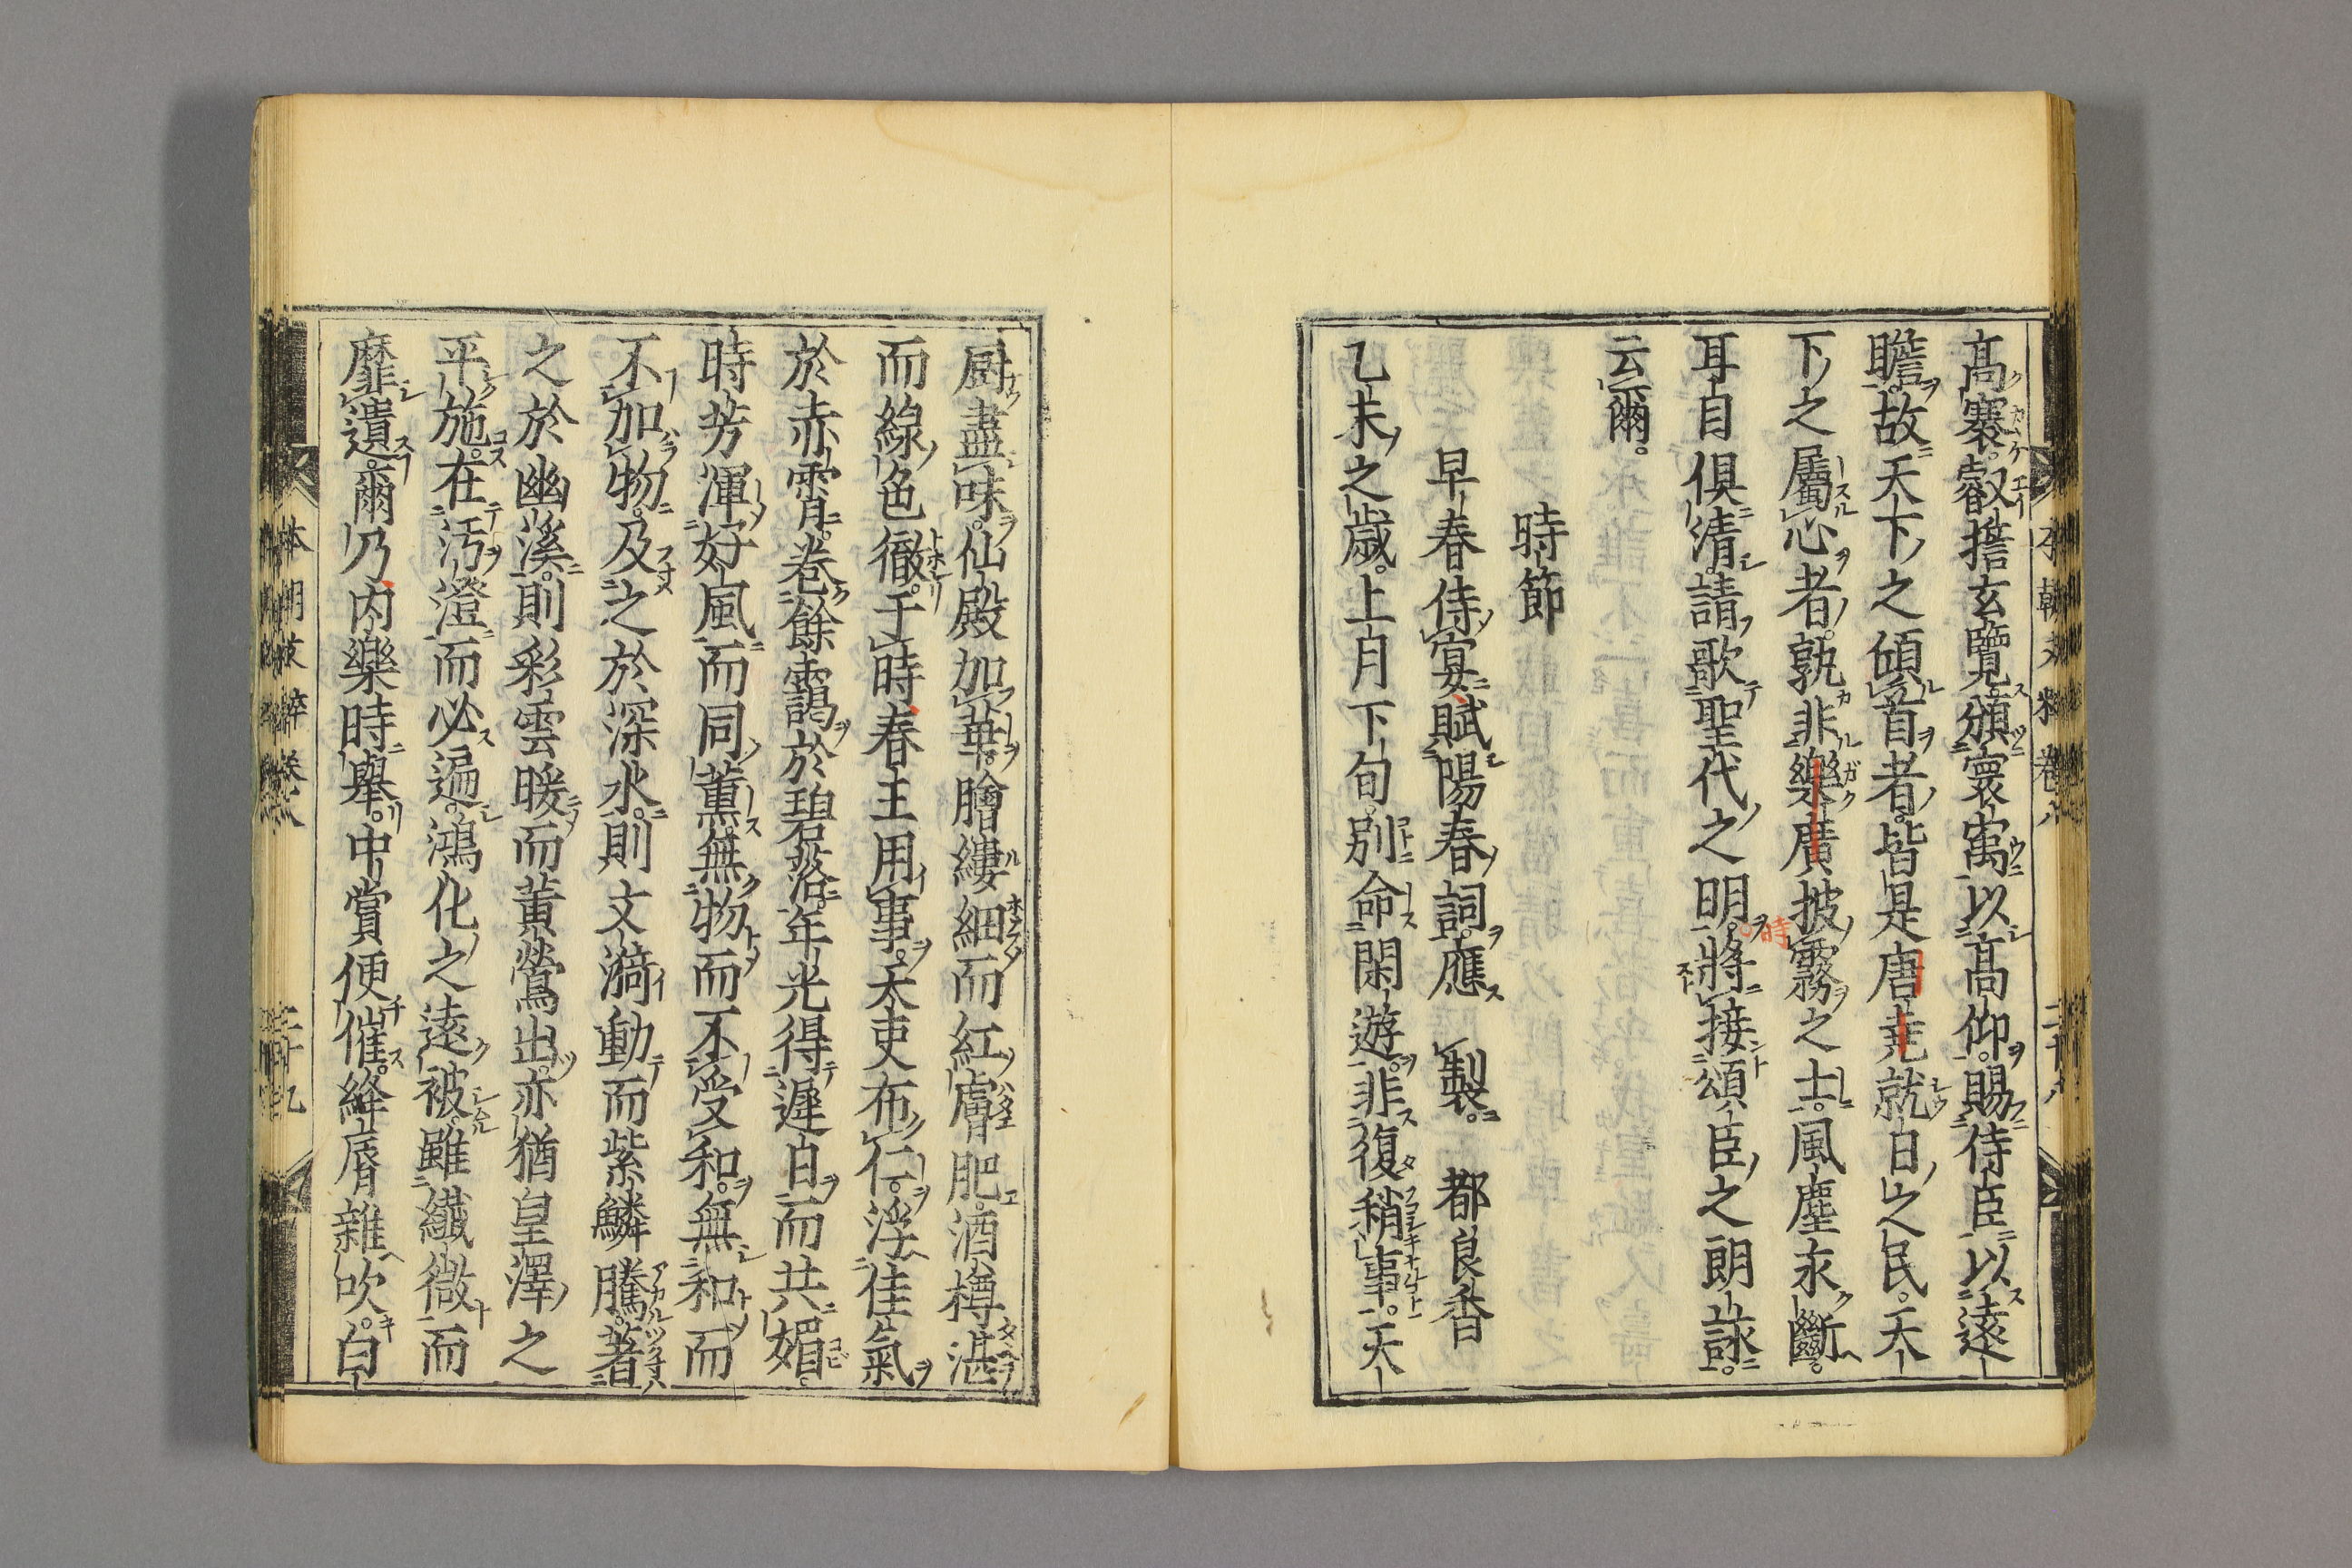 高褰。叡擔玄覽。頒寰㝢以高仰。賜侍臣以遠
瞻。故天下之傾首者。皆是唐尭就日之民。天
下之屬心者。孰非樂廣披霧之士。風塵永斷。
時
耳目俱清。請歌聖代之明。將接頌臣之朗詠。
云爾。
時節
早春侍宴賦陽春詞。應製。 都良香
乙未之歳。上月下旬。別命閑遊。非復稍事。天
厨盡味。仙殿加華。膾縷細而紅膚肥。酒樽湛
而綠色徹。于時春王用事。天吏布仁。浮佳氣
於赤霄。卷餘靄於碧落。年光得遲日而共媚。
時芳渾好風而同薫。無物而不受和。無和而
不加物。及之於深水。則文漪動而紫鱗騰。著
之於幽溪。則彩雲暖而黄鶯出。亦猶皇澤之
平施。在汚澄而必遍。鴻化之遠被。雖纖微而
靡遺。爾乃內樂時舉。中賞便催。絳脣雜吹。白
本朝文粹卷八
二十八
本朝文粹卷八
二十九